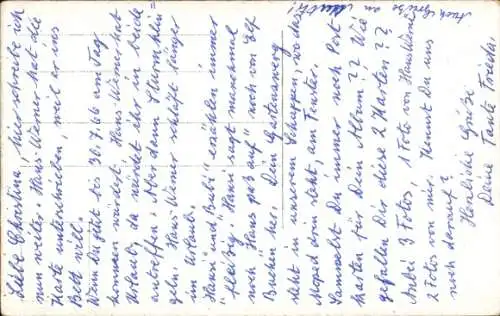 Liebe Christina, hier schreibe ich
nun weiter. Hans-Werner hat die
Karte unterschrieben, weil er ins
Bett will.
Wenn Du jetzt bis 30.7.66 am Tag
kommen würdest. Hans-Werner hat
Urlaub, da würdet ihr in beide
antreffen. Aber dann
Hans-Werner schläft länger
im Urlaub.
"Hansi und Bubi" erzählen immer
fleißig. "Hansi sagt manchmal
noch "Hans paß auf" noch von Elf
Buchen her. Dein
steht in unserem Schuppen, wo das
Moped drin steht, am Fenster.
Sammelst Du immer noch Post-
karten für Dein Album?? Wie
gefallen Dir diese 2 Karten??
Anbei 3 Fotos, 1 Foto von Hans Werner
2 Fotos von mir. Kennst Du uns
noch darauf?
Herzliche Grüße
Deine Tante Frieda.
Auch Grüße an Mutti!